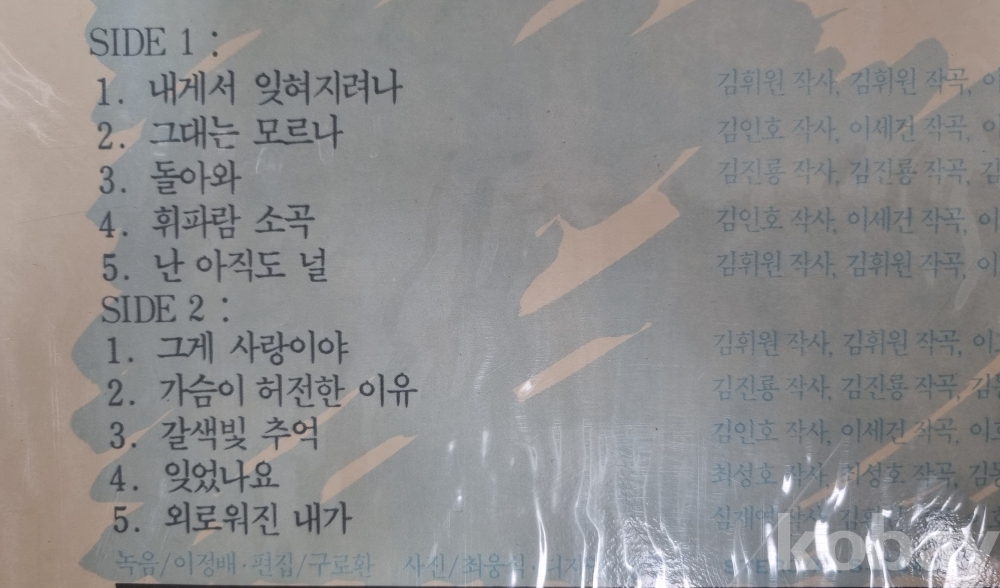 SIDE 1 :
1. 내게서 잊혀지려나 김휘원 작사, 김휘원 작곡,
2. 그대는 모르나 김인호 작사, 이세건 작곡,
3. 돌아와 김진룡 작사, 김진룡 작곡,
4. 휘파람 소곡 김인호 작사, 이세건 작곡,
5. 난 아직도 널 김휘원 작사, 김휘원 작곡,
SIDE 2 :
1. 그게 사랑이야 김휘원 작사, 김휘원 작곡,
2. 가슴이 허전한 이유 김진룡 작사, 김진룡 작곡,
3. 갈색빛 추억 김인호 작사, 이세건 작곡,
4. 잊었나요 최성호 작사, 최성호 작곡,
5. 외로워진 내가 심재연
녹음/이정배·편집/구로환 사진/최웅식
kobay